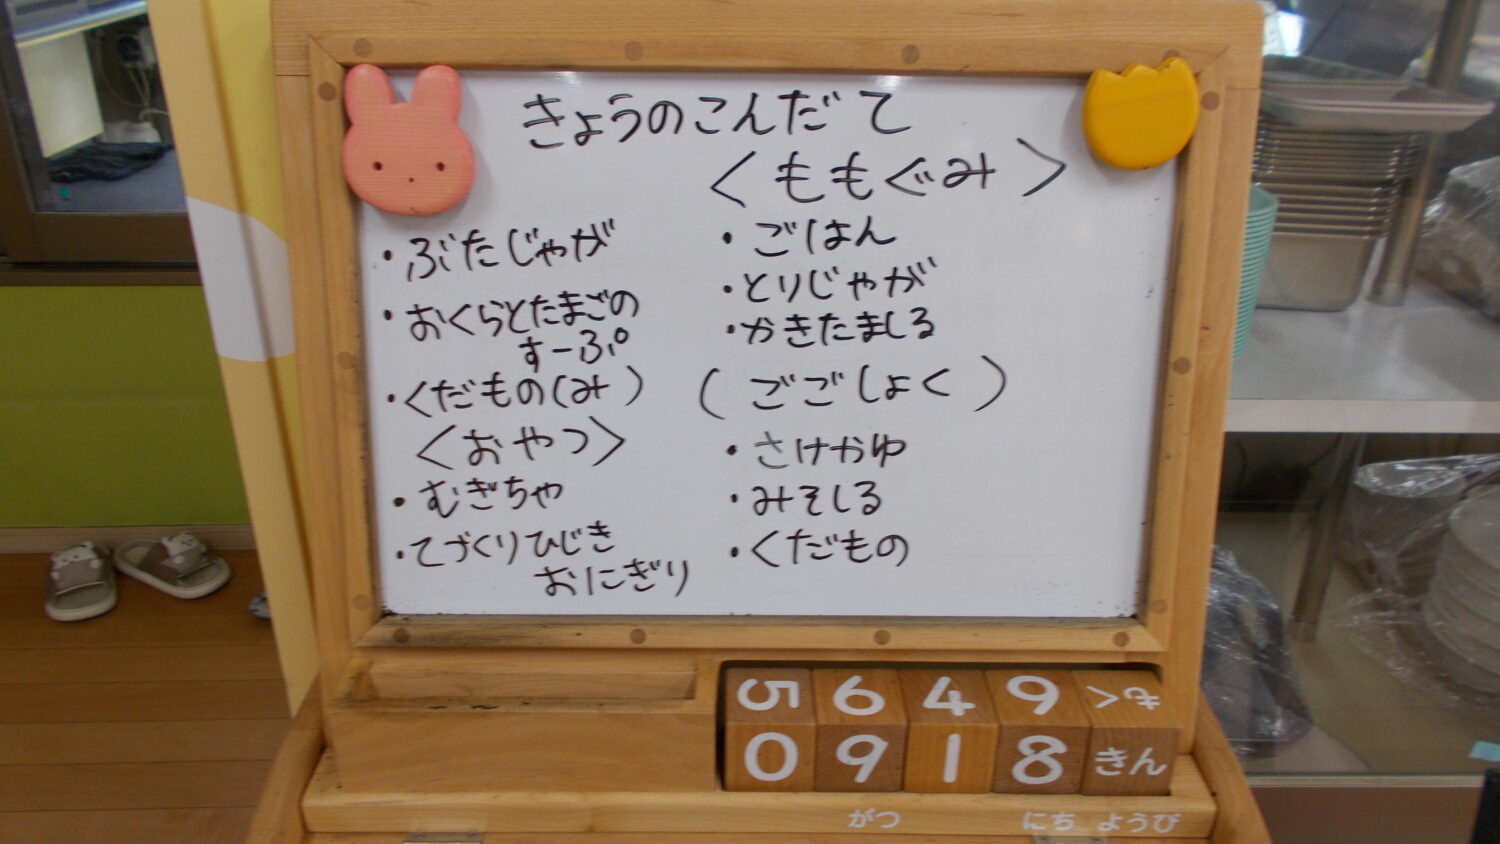 きょうのこんだて
＜ももぐみ＞
・ぶたじゃが
・おくらとたまごの
すーぷ
・くだもの(み)
＜おやつ＞
・むぎちゃ
・てづくりひじき
おにぎり
・ごはん
・とりじゃが
・かきたましる
(ごごしょく)
・さけかゆ
・みそしる
・くだもの
5 6 4 9 もく
0 9 1 8 きん
がつ にち ようび